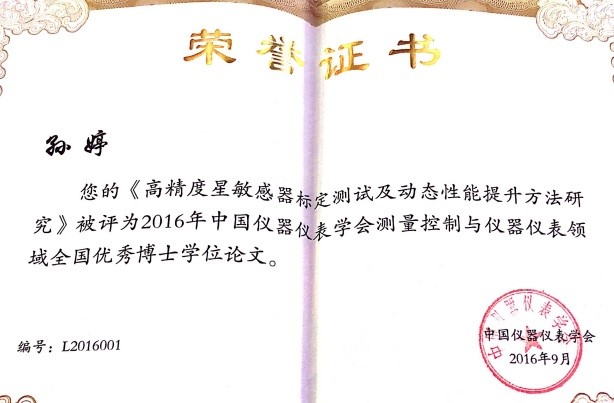 荣誉证书
孙婷
您的《高精度星敏感器标定测试及动态性能提升方法研
究》被评为2016年中国仪器仪表学会测量控制与仪器仪表领
域全国优秀博士学位论文。
中国仪器仪表学会
中国仪器仪表学会
编号：L2016001
2016年9月